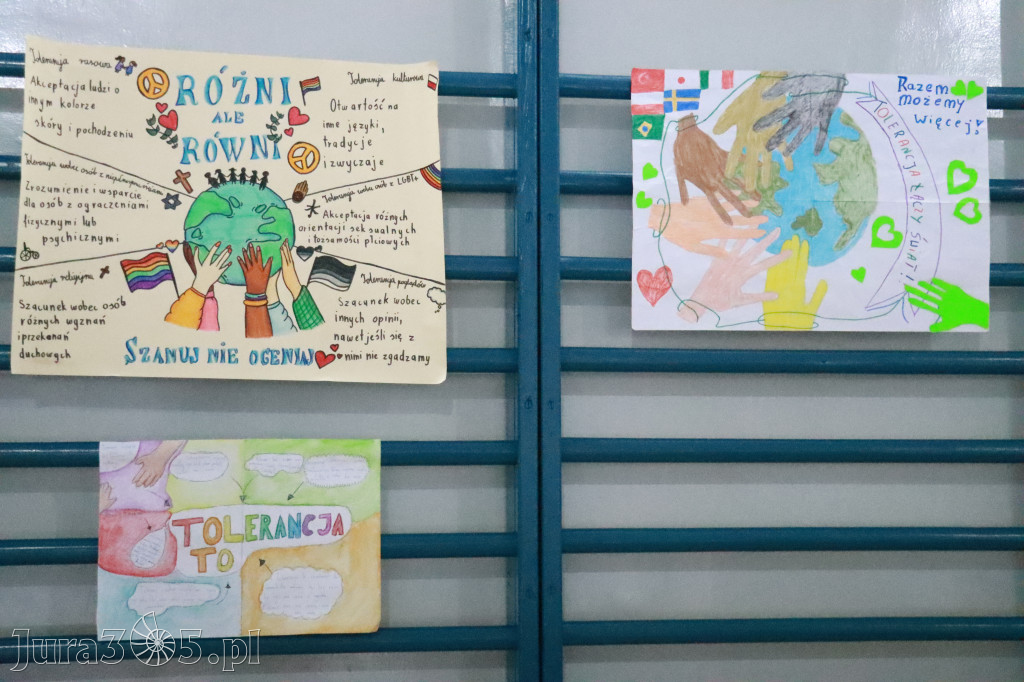 Tolerancja rasowa
Akceptacja ludzi o
innym kolorze
skóry i pochodzeniu
RÓŻNI
ALE
RÓWNI
Tolerancja kulturowa
Otwartość na
inne języki,
tradycje
i zwyczaje
Tolerancja wobec osób z niepełnosprawnościami
Zrozumienie i wsparcie
dla osób z ograczeniami
fizycznymi lub
psychicznymi
Tolerancja wobec osób z LGBT+
Akceptacja różnych
orientacji seksualnych
i tożsamości płciowych
Tolerancja religijna
Szacunek wobec osób
różnych wyznań
i przekonań
duchowych
Tolerancja poglądów
Szacunek wobec
innych opinii,
nawet jeśli się z
nimi nie zgadzamy
SZANUJ NIE OCENIAJ
Razem
możemy
więcej!
TOLERANCJA ŁĄCZY ŚWIAT!
TOLERANCJA
TO
Jura365.pl